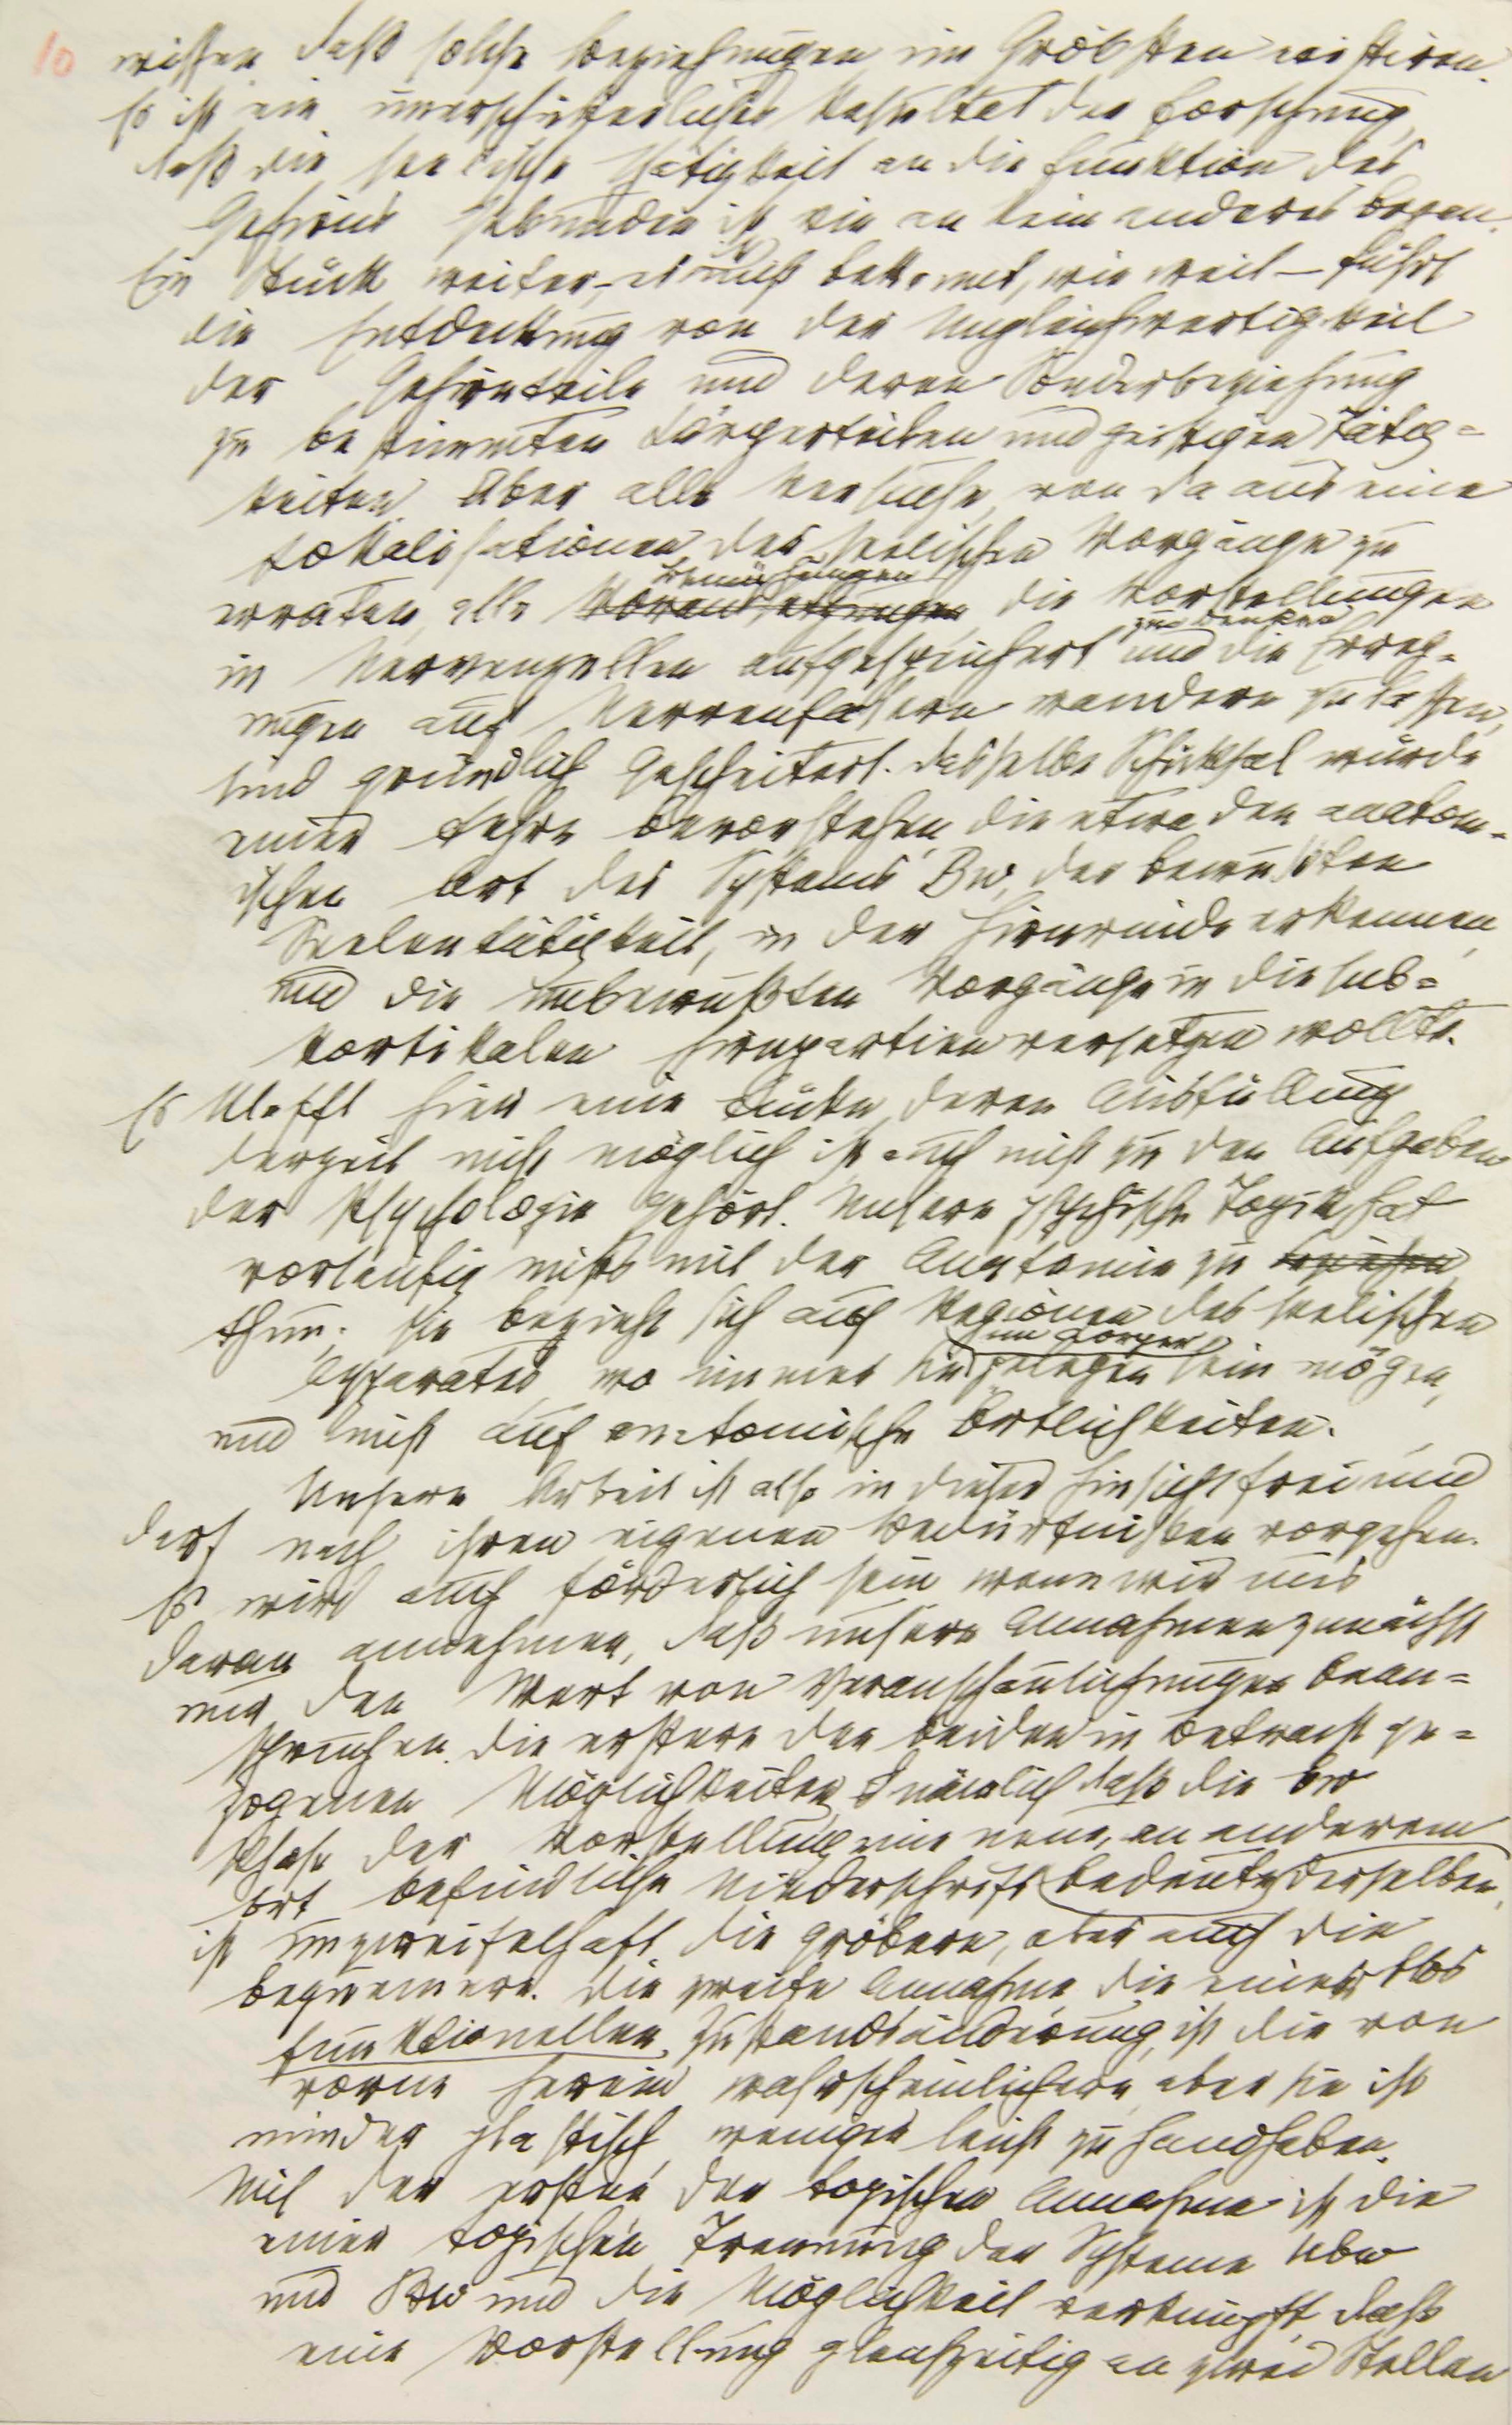 10
wissen, daß solche Beziehungen im Gröbsten existiren.
Es ist ein unerschütterliches Resultat der Forschung,
daß die seelische Thätigkeit an die Funktion des
Gehirns gebunden ist wie an kein anderes Organ.
Ein Stück weiter – es ist nicht bekannt, wie weit – führt
die Entdeckung von der Ungleichwertigkeit
der Gehirnteile und deren Sonderbeziehung
zu bestimmten Körperteilen und geistigen Tätig=
keiten. Aber alle Versuche, von da aus eine
Lokalisationen der seelischen Vorgänge zu
Bemühungen
erraten, alle die Vorstellungen
zu denken
in Nervenzellen aufgespeichert und die Erreg=
ungen auf Nervenfasern wandern zu lassen,
sind gründlich gescheitert. Dasselbe Schicksal würde
einer Lehre bevorstehen, die etwa den anatom=
ischen Ort des Systems Bw, der bewußten
Seelentätigkeit, in der Hirnrinde erkennen
und die unbewußten Vorgänge in die sub=
kortikalen Hirnpartien versetzen wollte.
Es klafft hier eine Lücke, deren Ausfüllung
derzeit nicht möglich ist, auch nicht zu den Aufgaben
der Psychologie gehört. Unsere psychische Topik hat
vorläufig nichts mit der Anatomie zu
thun; sie bezieht sich auf Regionen des seelischen
im Körper
Apparates, wo immer sie gelegen sein mögen,
und nicht auf anatomische Örtlichkeiten.
Unsere Arbeit ist also in dieser Hinsicht frei und
darf nach ihren eigenen Bedürfnissen vorgehen.
Es wird auch förderlich sein, wenn wir uns
daran annehmen, daß unsere Annahmen zunächst
nur den Wert von Veranschaulichungen bean=
spruchen. Die erstere der beiden in Betracht ge=
zogenen Möglichkeiten, nämlich daß die bw
Phase der Vorstellung eine neue, an anderem
Ort befindliche Niederschrift bedeute derselben,
ist unzweifelhaft die gröbere, aber auch die
bequemere. Die zweite Annahme, die einer blos
funktionellen Zustandsänderung, ist die von
vorne herein wahrscheinlichere, aber sie ist
minder plastisch, weniger leicht zu handhaben.
Mit der ersten, der topischen Annahme ist die
einer topischen Trennung der Systeme Ubw
und Bw und die Möglichkeit verknüpft, daß
eine Vorstellung gleichzeitig an zwei Stellen